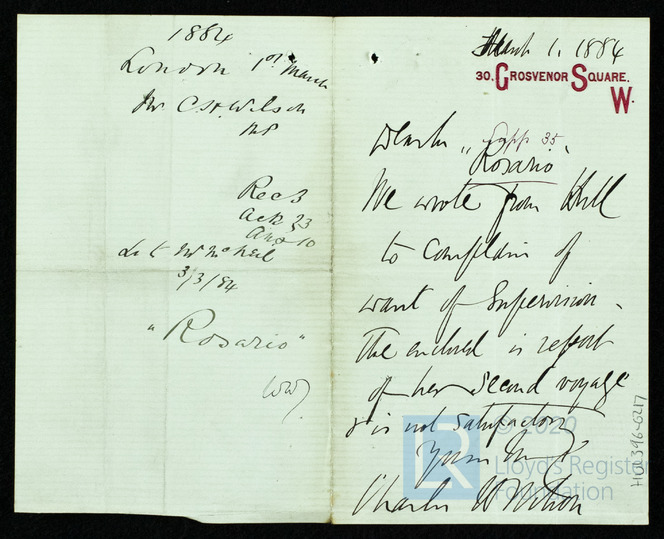 1884
London 1st March
Mr C H Wilson
MP
Recd
Ackd 23
Ansd 10
Let Mr McNeil
3/3/84
"Rosario"
WW
March 1, 1884
30. GROSVENOR SQUARE.
W.
Dear Sir
"Rosario"
We wrote from Hull
to complain of
want of Supervision.
The enclosed is report
of her second voyage
& is not satisfactory
Yours truly
Charles H Wilson
© 2020
Lloyd's Register
Foundation
LR
HUL396-0217